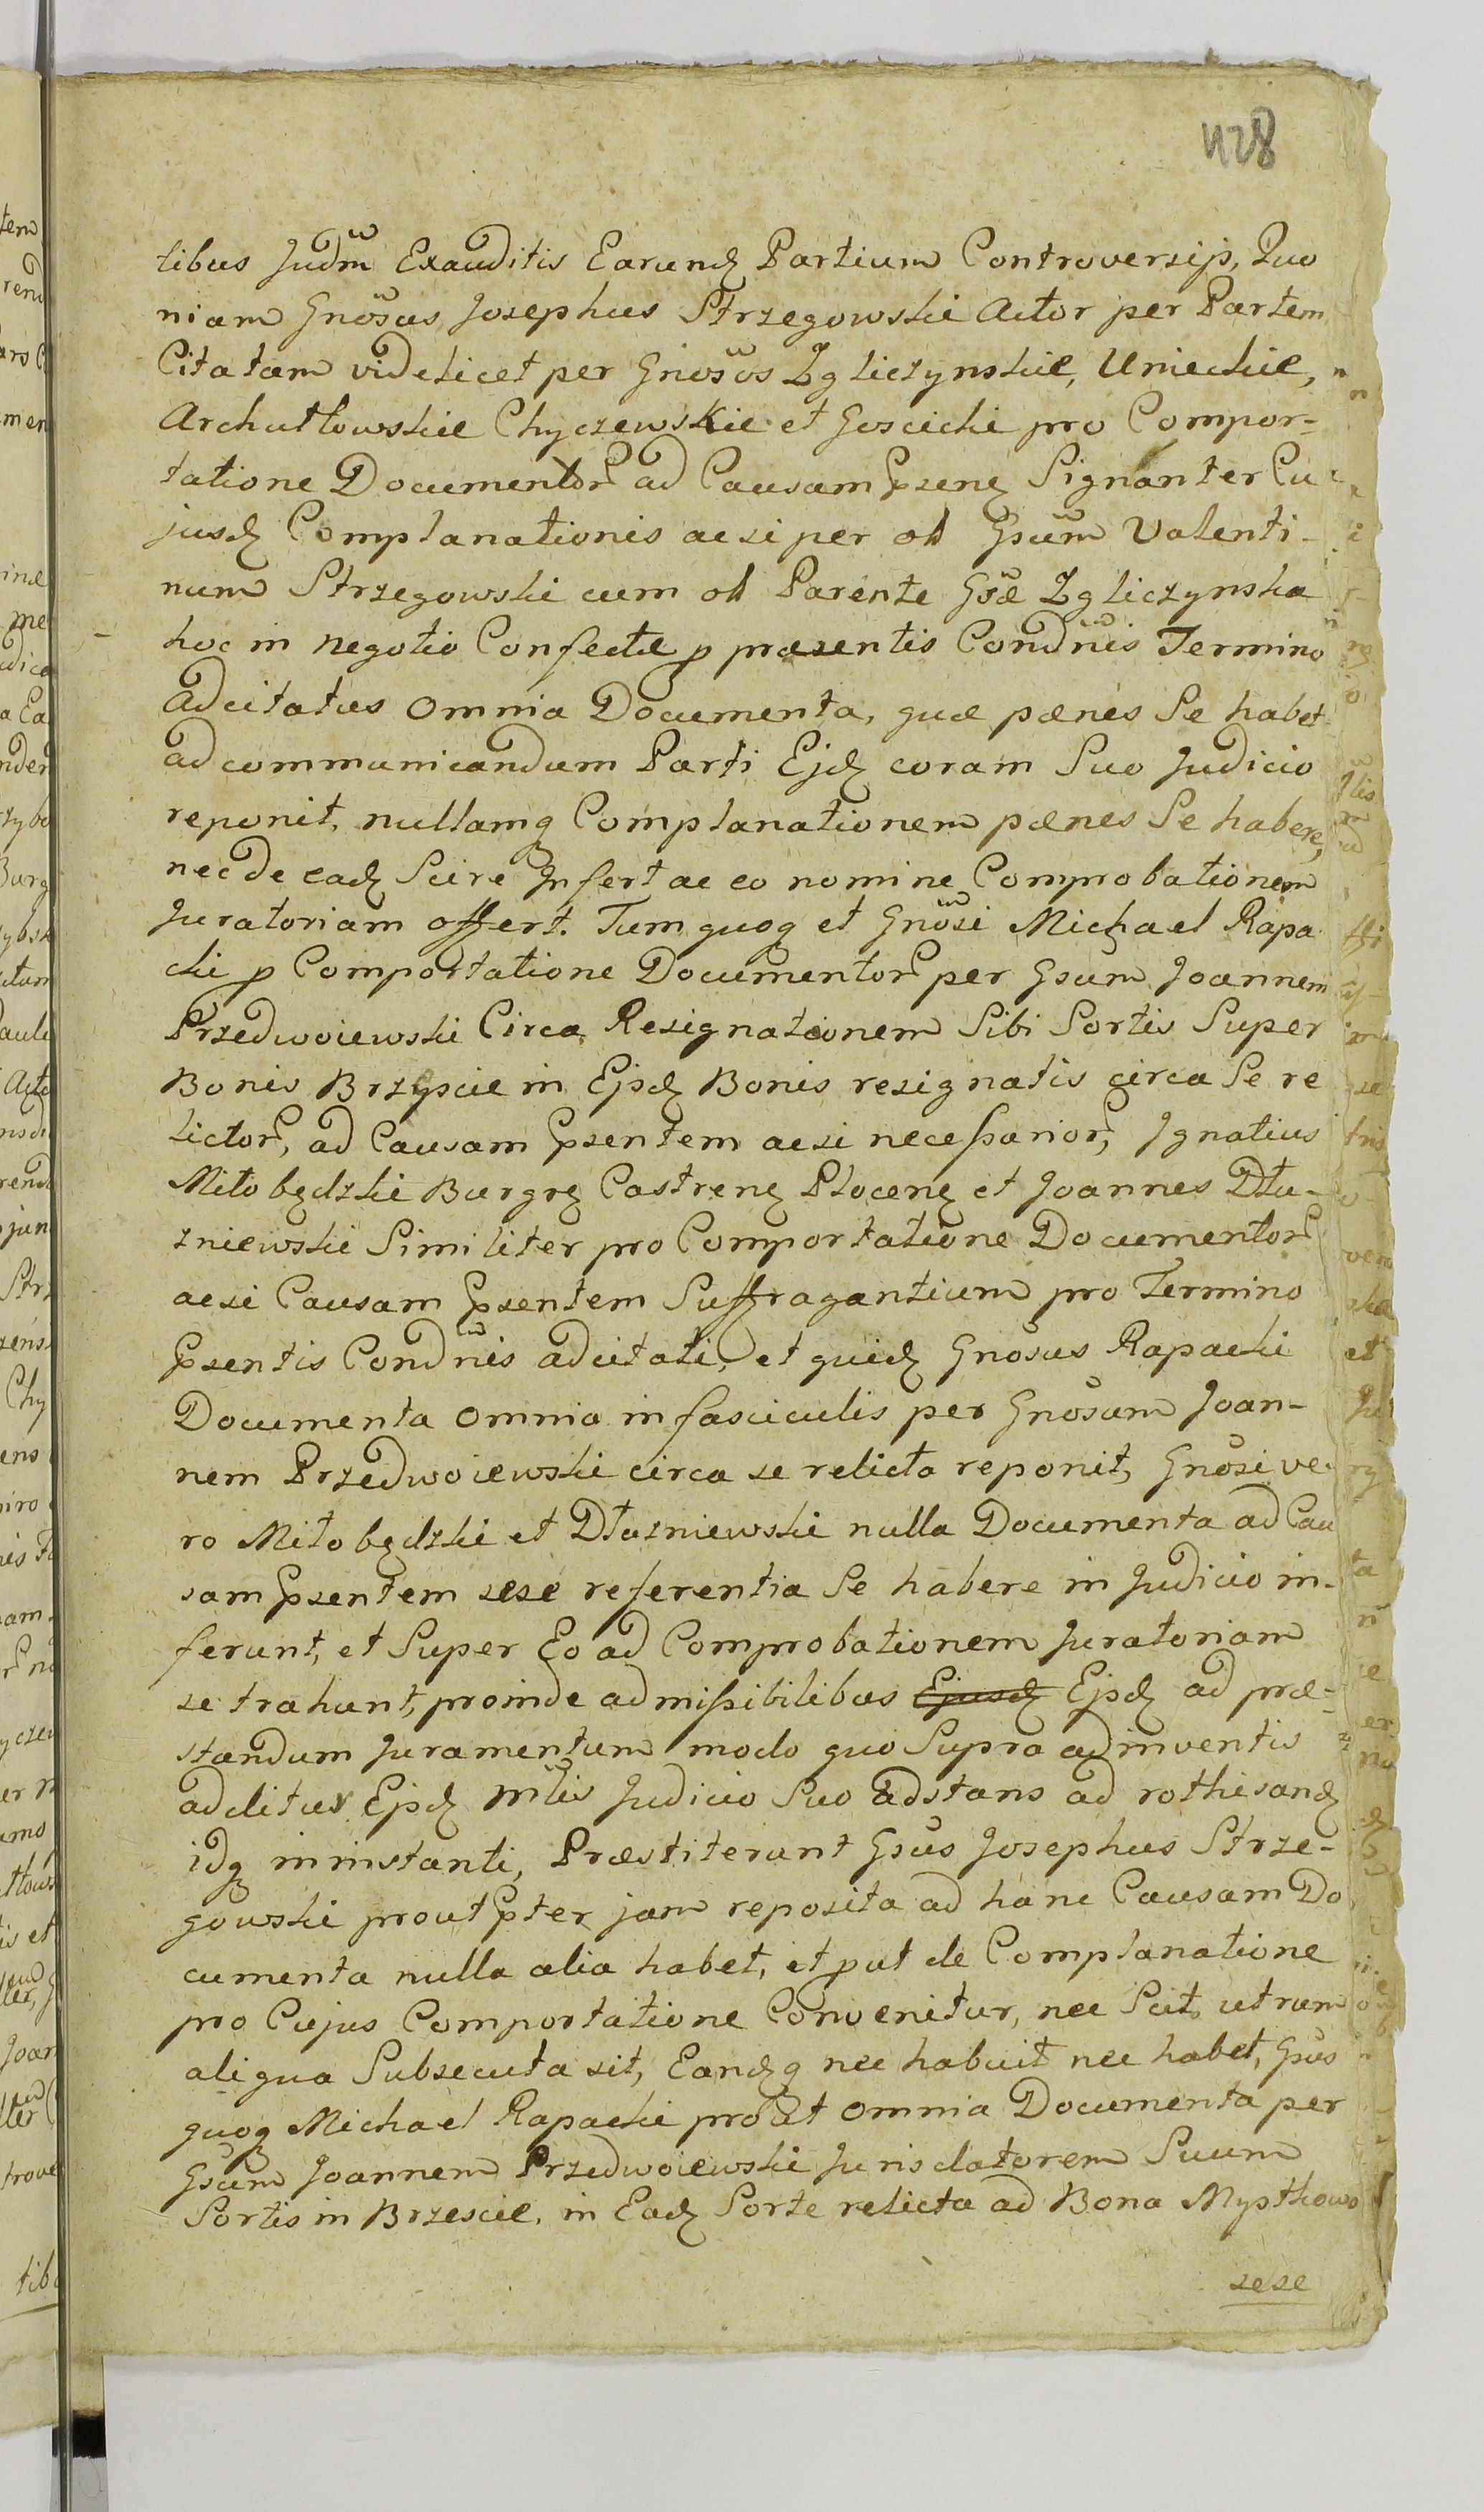 428
tibus Judm Exauditis Earund Partium Controversijs, Quo
niam Gnosus Josephus Strzegowski Actor per Partem
Citatam videlicet per Gnosos Zgliczynskie, Unieckie,
Archutowskie Chyczewskie et Goscicki pro Compor-
tatione Documentor ad Causam Psen Signanter Cu
jusd Complanationis acsi per ol Gsum Valenti-
num Strzegowski cum ol Parente Gsae Zgliczynska
hoc in negotio Confectae p praesentis Condnis Termino
adcitatus omnia Documenta, quae paenes Se habet
ad communicandum Parti Ejd coram Suo Judicio
reponit, nullamq Complanationem paenes Se habere,
nec de ead Scire Infert ac eo nomine Comprobationem
Juratoriam offert. Tum quoq et Gnosi Michael Rapa
cki p Comportatione Documentor per Gsum Joannem
Przedwoiewski Circa Resignationem Sibi Sortis Super
Bonis Brzyscie in Ejsd Bonis resignatis circa Se re
lictor, ad Causam Psentem acsi necessarior, Ignatius
Miłobędzki Burgr Castren Plocen et Joannes Dłu-
zniewski Similiter pro Comportatione Documentor
acsi Causam Psentem Suffragantium pro Termino
Psentis Condnis adcitati, et quid Gnosus Rapacki
Documenta omnia in fasciculis per Gnosum Joan-
nem Przedwoiewski circa se relicta reponit, Gnosi ve
ro Miłobędzki et Dłuzniewski nulla Documenta ad Cau
sam Psentem sese referentia Se habere in Judicio in-
ferunt, et Super Eo ad Comprobationem Juratoriam
se trahunt, proinde admissibilibus Ejusd Ejsd ad prae-
standum Juramentum modo quo Supra adinventis
additus Ejsd Mlis Judicio Suo adstans ad rothisand
idq in instanti, Praestiterunt Gsus Josephus Strze-
gowski prout Pter jam reposita ad hanc Causam Do
cumenta nulla alia habet, et put de Complanatione
pro Cujus Comportatione Convenitur, nec Scit, utrum
aliqua Subsecuta sit, Eandq nec habuit nec habet, Gsus
quoq Michael Rapacki prout omnia Documenta per
Gsum Joannem Przedwoiewski Juris datorem Suum
Sortis in Brzescie, in Ead Sorte relicta ad Bona Mystkowo
sese